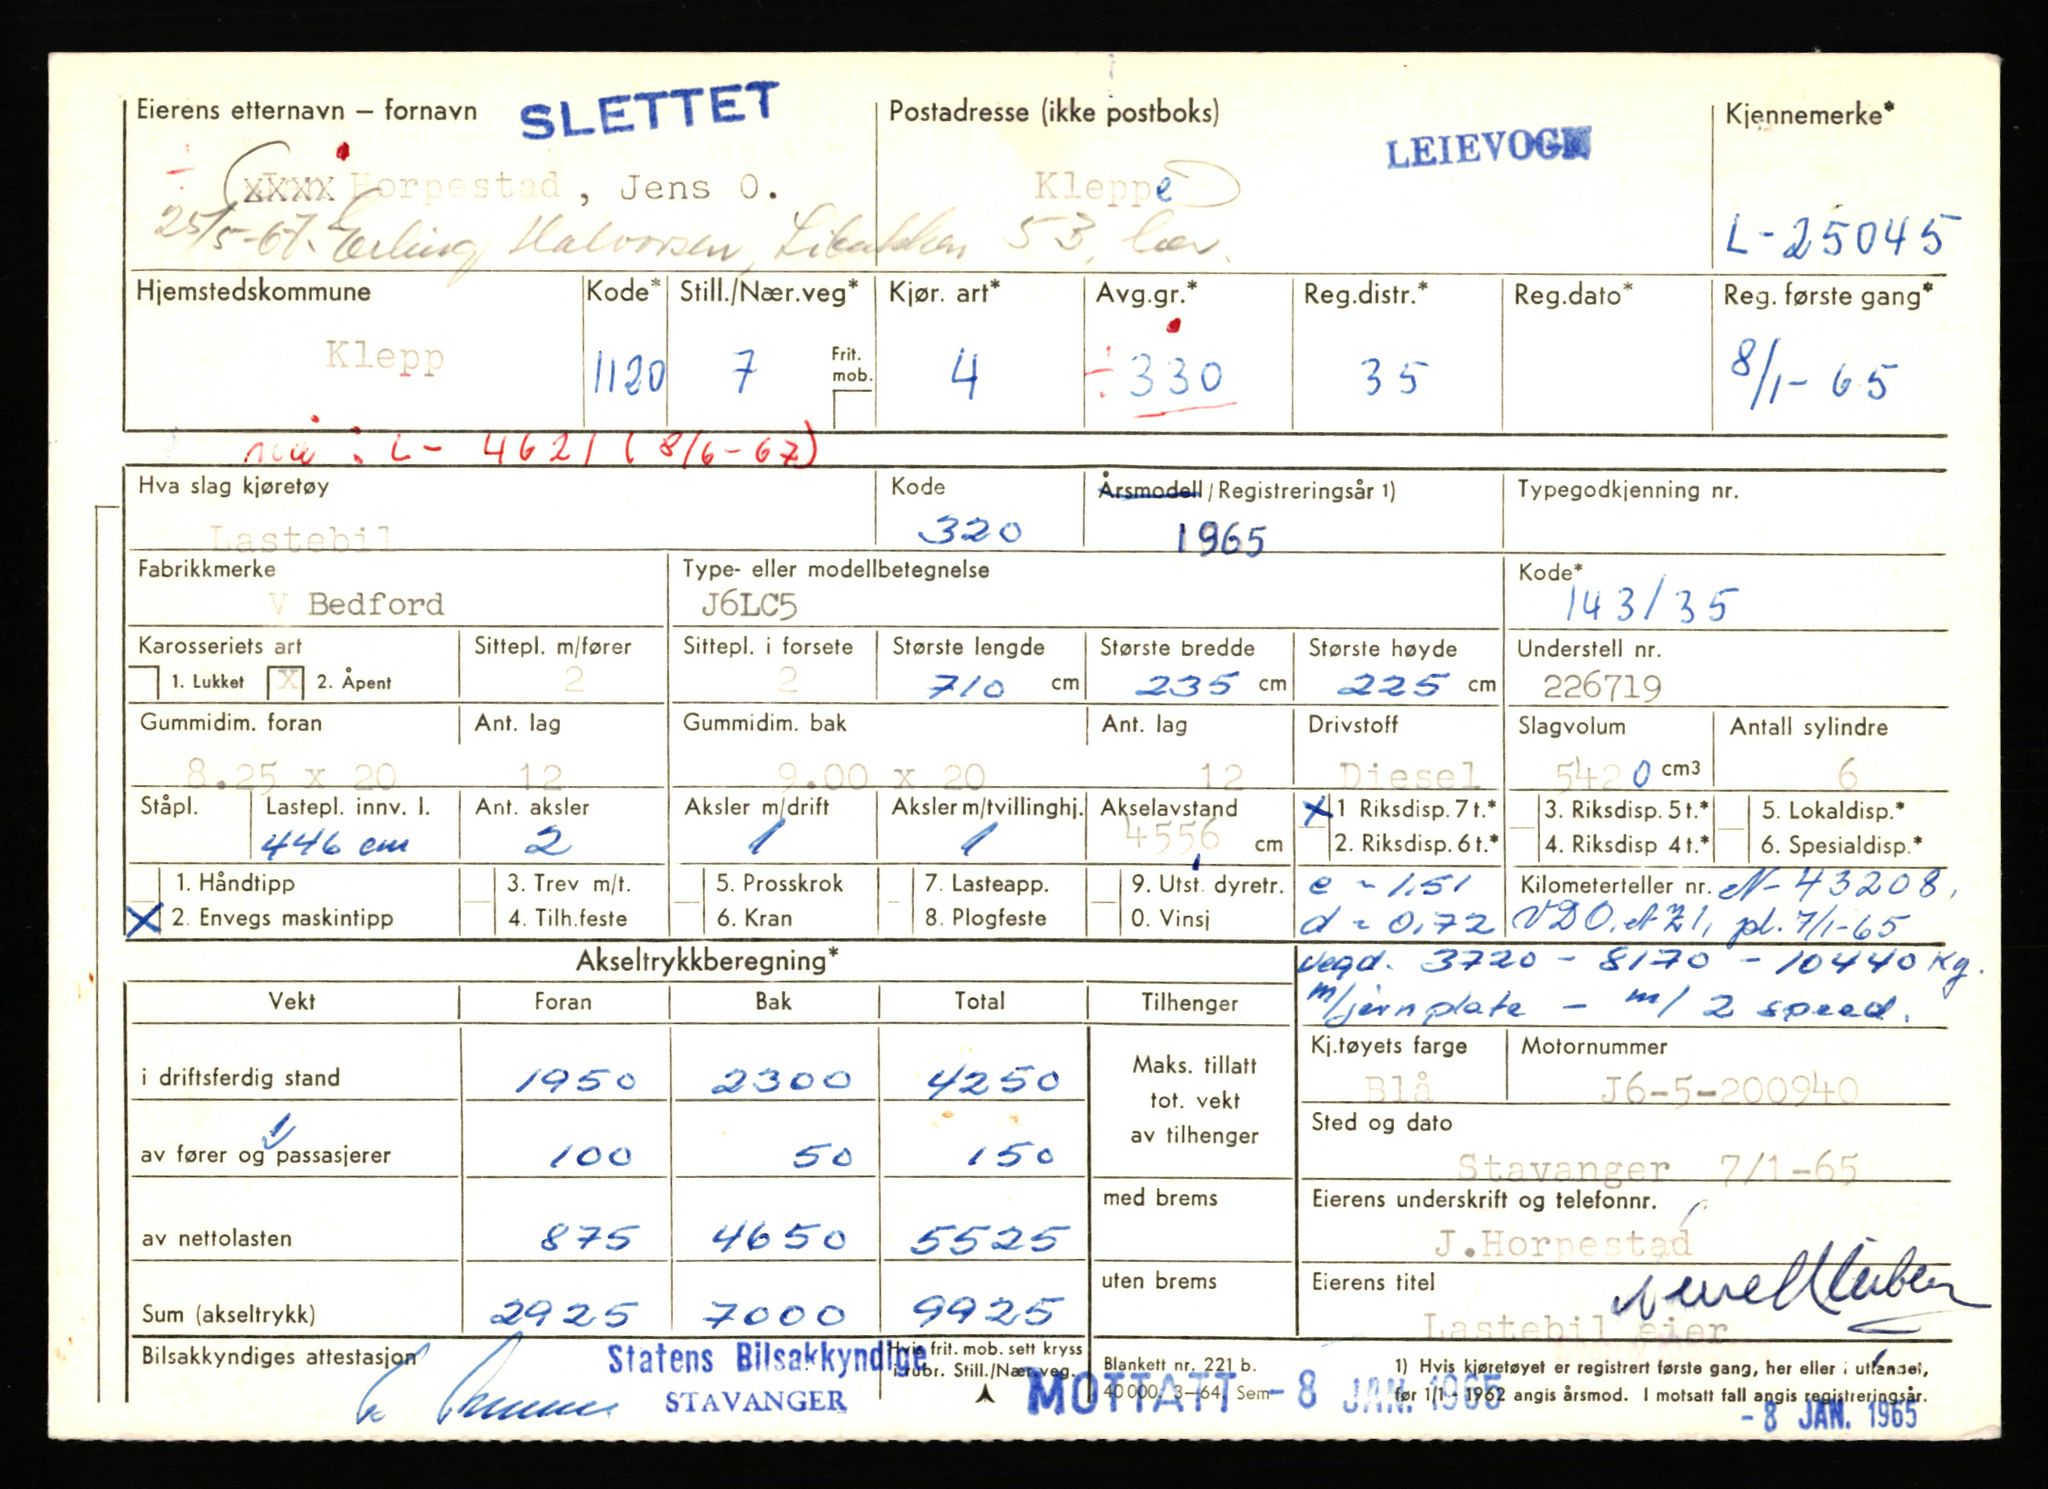 Eierens etternavn – fornavn SLETTET Postadresse (ikke postboks) LEIEVOGN Kjennemerke*
xXxX Horpestad, Jens O. Kleppe
25/5-67. Erling Halvorsen, 53, her. L-25045
Hjemstedskommune Kode* Still./Nær.veg* Kjør. art* Avg.gr.* Reg.distr.* Reg.dato* Reg. første gang*
Klepp 1120 7 Frit. mob. 4 ÷ 330 35 8/1-65
nå: L- 4621 (8/6-67)
Hva slag kjøretøy Kode Årsmodell/Registreringsår 1) Typegodkjenning nr.
Lastebil 320 1965
Fabrikkmerke Type- eller modellbetegnelse Kode*
V Bedford J6LC5 143/35
Karosseriets art Sittepl. m/fører Sittepl. i forsete Største lengde Største bredde Største høyde Understell nr.
1. Lukket X 2. Åpent 2 2 710 cm 235 cm 225 cm 226719
Gummidim. foran Ant. lag Gummidim. bak Ant. lag Drivstoff Slagvolum Antall sylindre
8.25 x 20 12 9.00 x 20 12 Diesel 5420 cm3 6
Ståpl. Lastepl. innv. l. Ant. aksler Aksler m/drift Aksler m/tvillinghj. Akselavstand X 1 Riksdisp. 7 t.* 3. Riksdisp. 5 t.* 5. Lokaldisp.*
446 cm 2 1 1 4556 cm 2. Riksdisp. 6 t.* 4. Riksdisp 4 t.* 6. Spesialdisp.*
1. Håndtipp 3. Trev m/t. 5. Prosskrok 7. Lasteapp. 9. Utst. dyretr. e = 1,51 Kilometerteller nr. N-43208,
X 2. Envegs maskintipp 4. Tilh.feste 6. Kran 8. Plogfeste 0. Vinsj d = 0,72 VDO, pl. 7/1-65
Akseltrykkberegning* vegd. 3720 - 8170 - 10440 kg.
Vekt Foran Bak Total Tilhenger m/jernplate - m/ 2 speed.
i driftsferdig stand 1950 2300 4250 Maks. tillatt tot. vekt av tilhenger Kj.tøyets farge Motornummer
Blå J6-5-200940
av fører og 1 passasjerer 100 50 150 Sted og dato
Stavanger 7/1-65
av nettolasten 875 4650 5525 med brems Eierens underskrift og telefonnr.
J.Horpestad
Sum (akseltrykk) 2925 7000 9925 uten brems Eierens titel
Lastebil eier
Bilsakkyndiges attestasjon Statens Bilsakkyndige Hvis frit. mob. sett kryss Blankett nr. 221 b. 1) Hvis kjøretøyet er registrert første gang, her eller i utlandet,
STAVANGER i rubr. Still./Nær.veg. 40 000. 3–64. Sem før 1/1 - 1962 angis årsmod. I motsatt fall angis registreringsår.
MOTTATT - 8 JAN. 1965 - 8 JAN. 1965